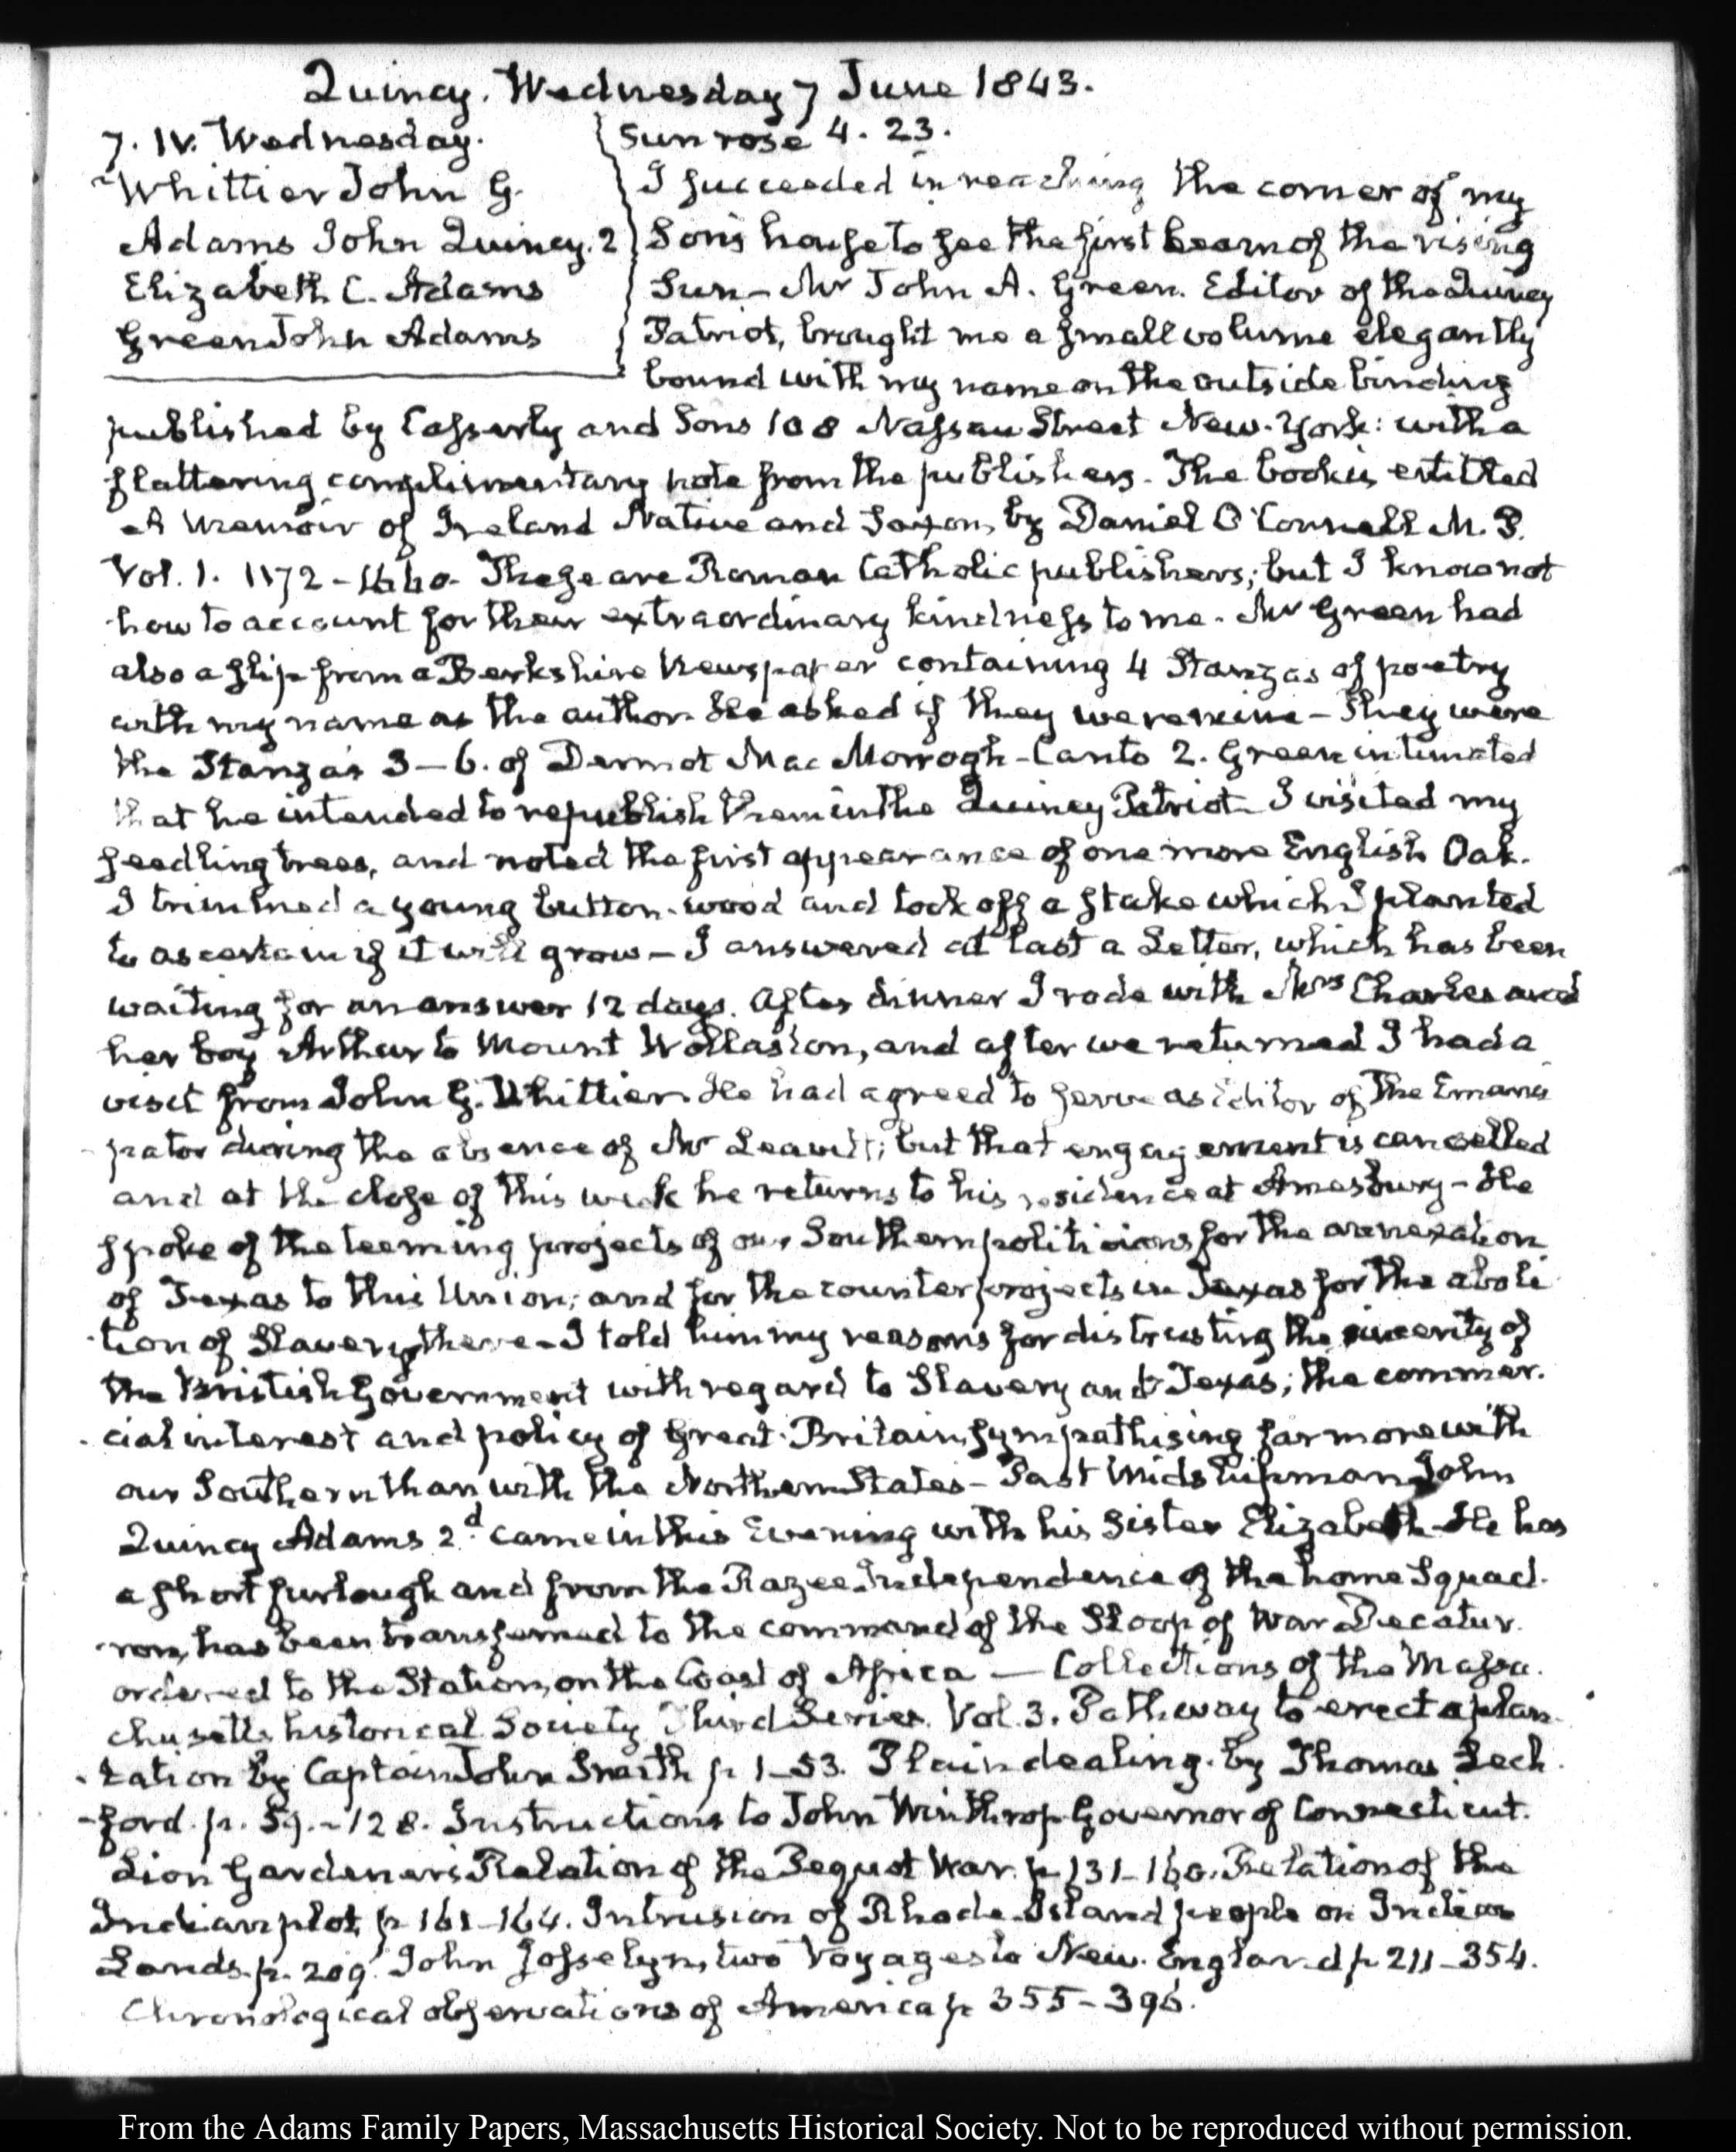 Quincy. Wednesday 7 June 1843.
7. IV. Wednesday.
Whittier John G.
Adams John Quincy. 2
Elizabeth C. Adams
Green John Adams
Sun rose 4. 23.
I succeeded in reaching the corner of my
Son's house to see the first beam of the rising
Sun — Mr John A. Green. Editor of the Quincy
Patriot, brought me a small volume elegantly
bound with my name on the outside binding
published by Casserly and Sons 108 Nassau Street New-York: with a
flattering complimentary note from the publishers. The book is entitled
A Memoir of Ireland Native and Saxon, by Daniel O'Connell M. P.
Vol. 1. 1172-1660. These are Roman Catholic publishers; but I know not
how to account for their extraordinary kindness to me. Mr Green had
also a slip from a Berkshire Newspaper containing 4 Stanzas of poetry
with my name as the author. He asked if they were mine — They were
the Stanzas 3-6. of Dermot Mac Morrogh - Canto 2. Green intimated
that he intended to republish them in the Quincy Patriot — I visited my
seedling trees, and noted the first appearance of one more English Oak.
I trimmed a young button-wood and took off a stake which I planted
to ascertain if it will grow — I answered at last a Letter, which has been
waiting for an answer 12 days. After dinner I rode with Mrs Charles and
her boy Arthur to Mount Wollaston, and after we returned I had a
visit from John G. Whittier. He had agreed to serve as Editor of The Emanci
pator during the absence of Mr Leavitt; but that engagement is cancelled
and at the close of this week he returns to his residence at Amesbury — He
spoke of the teeming projects of our Southern politicians for the annexation
of Texas to this Union; and for the counter projects in Texas for the aboli
tion of Slavery there — I told him my reasons for distrusting the sincerity of
the Bristish Government with regard to Slavery and Texas; the commer.
cial interest and policy of Great-Britain sympathising far more with
our Southern than with the Northern States — Past Midshipman John
Quincy Adams 2d. came in this Evening with his Sister Elizabeth — He has
a short furlough and from the Razee Independence of the home Squad.
ron, has been transferred to the command of the Sloop of War Decatur.
ordered to the Station, on the Coast of Africa — Collections of the Massa.
chusetts historical Society Third Series. Vol. 3. Pathway to erect a plan.
tation by Captain John Smith p 1-53. Plain dealing. by Thomas Lech
ford. p. 59.-128. Instructions to John Winthrop Governor of Connecticut.
Lion Gardener's Relation of the Pequot War. p 131-160. Relation of the
Indian plot, p 161-164. Intrusion of Rhode-Island people on Indian
Lands. p. 209. John Josselyn, two Voyages to New. England p 211-354.
Chronological observations of America p 355-396.
From the Adams Family Papers, Massachusetts Historical Society. Not to be reproduced without permission.